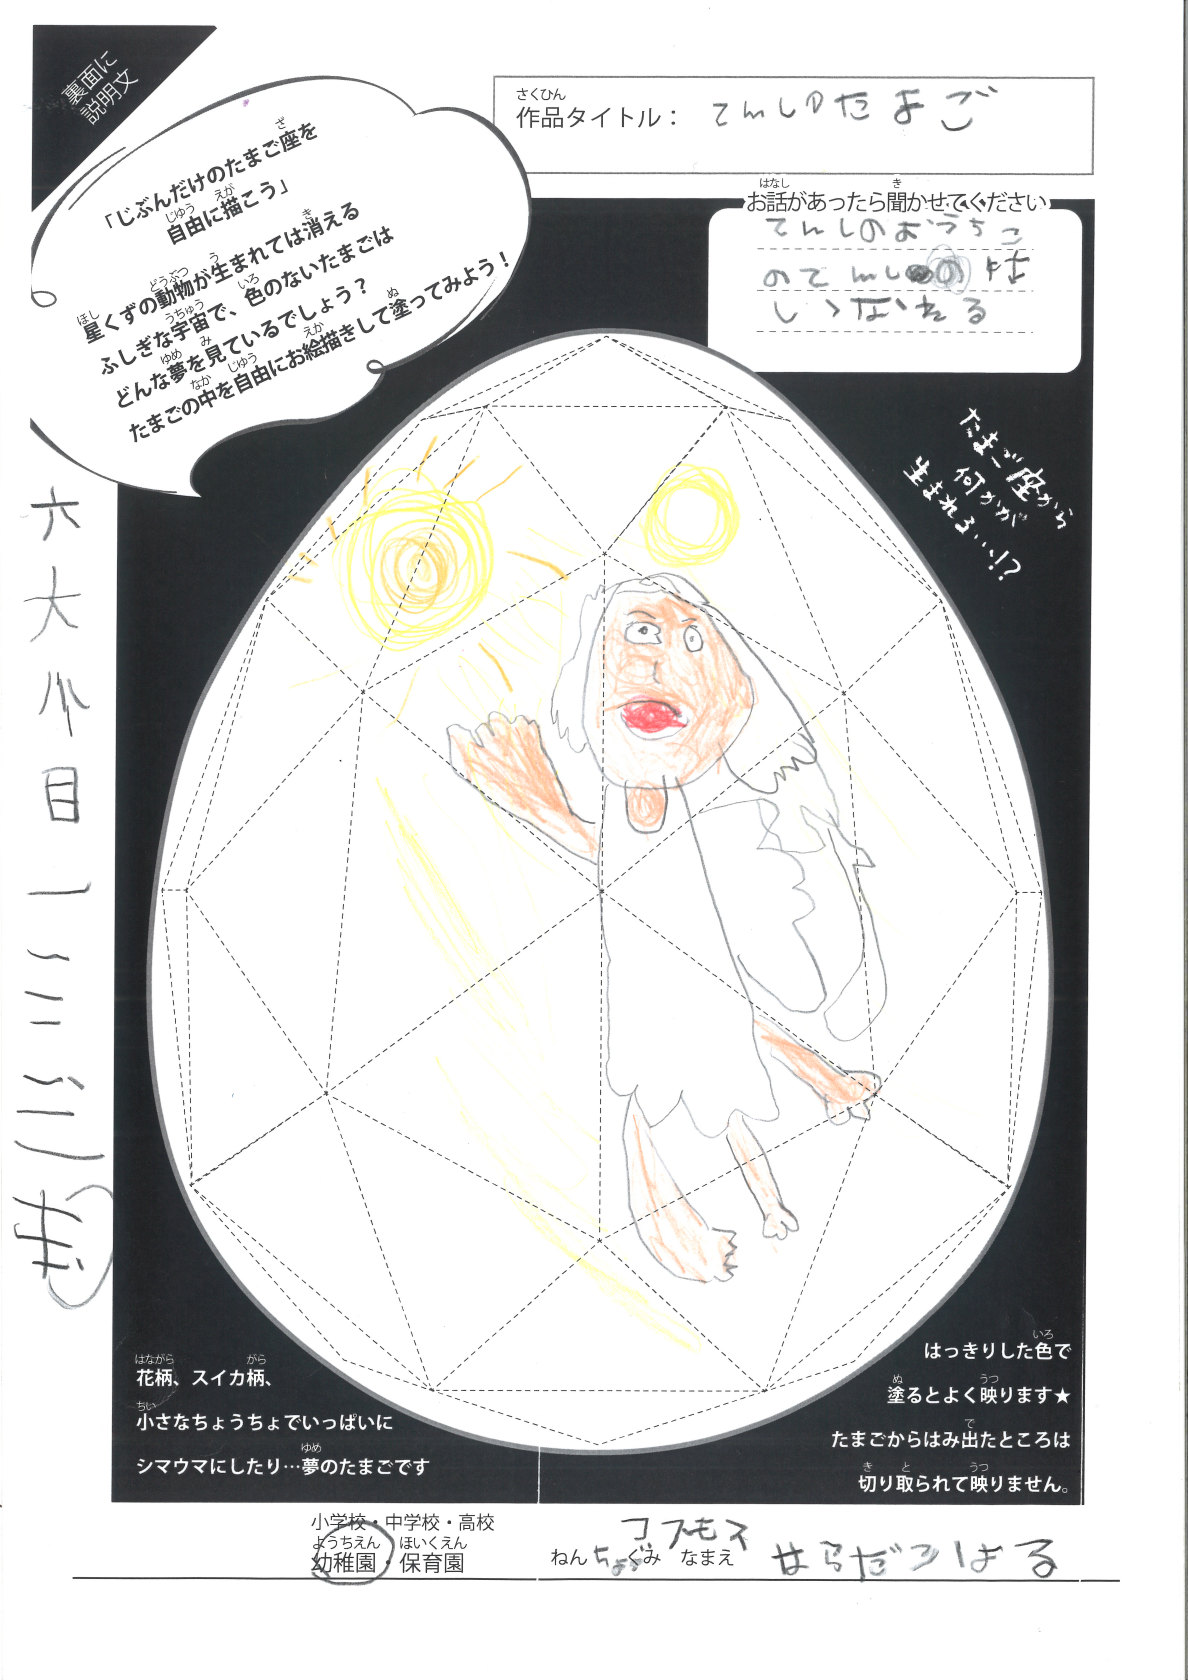 裏面に
説明文
「じぶんだけのたまご座を
自由に描こう」
星くずの動物が生まれては消える
ふしぎな宇宙で、色のないたまごは
どんな夢を見ているでしょう？
たまごの中を自由にお絵描きして塗ってみよう！
作品タイトル： てんしのたまご
お話があったら聞かせてください
てんしのおうちこ
のてんしの
たまご座から
何かが
生まれる…!?
花柄、スイカ柄、
小さなちょうちょでいっぱいに
シマウマにしたり…夢のたまごです
はっきりした色で
塗るとよく映ります★
たまごからはみ出たところは
切り取られて映りません。
小学校・中学校・高校
幼稚園・保育園
ねん コスモス ぐみ なまえ はらだ